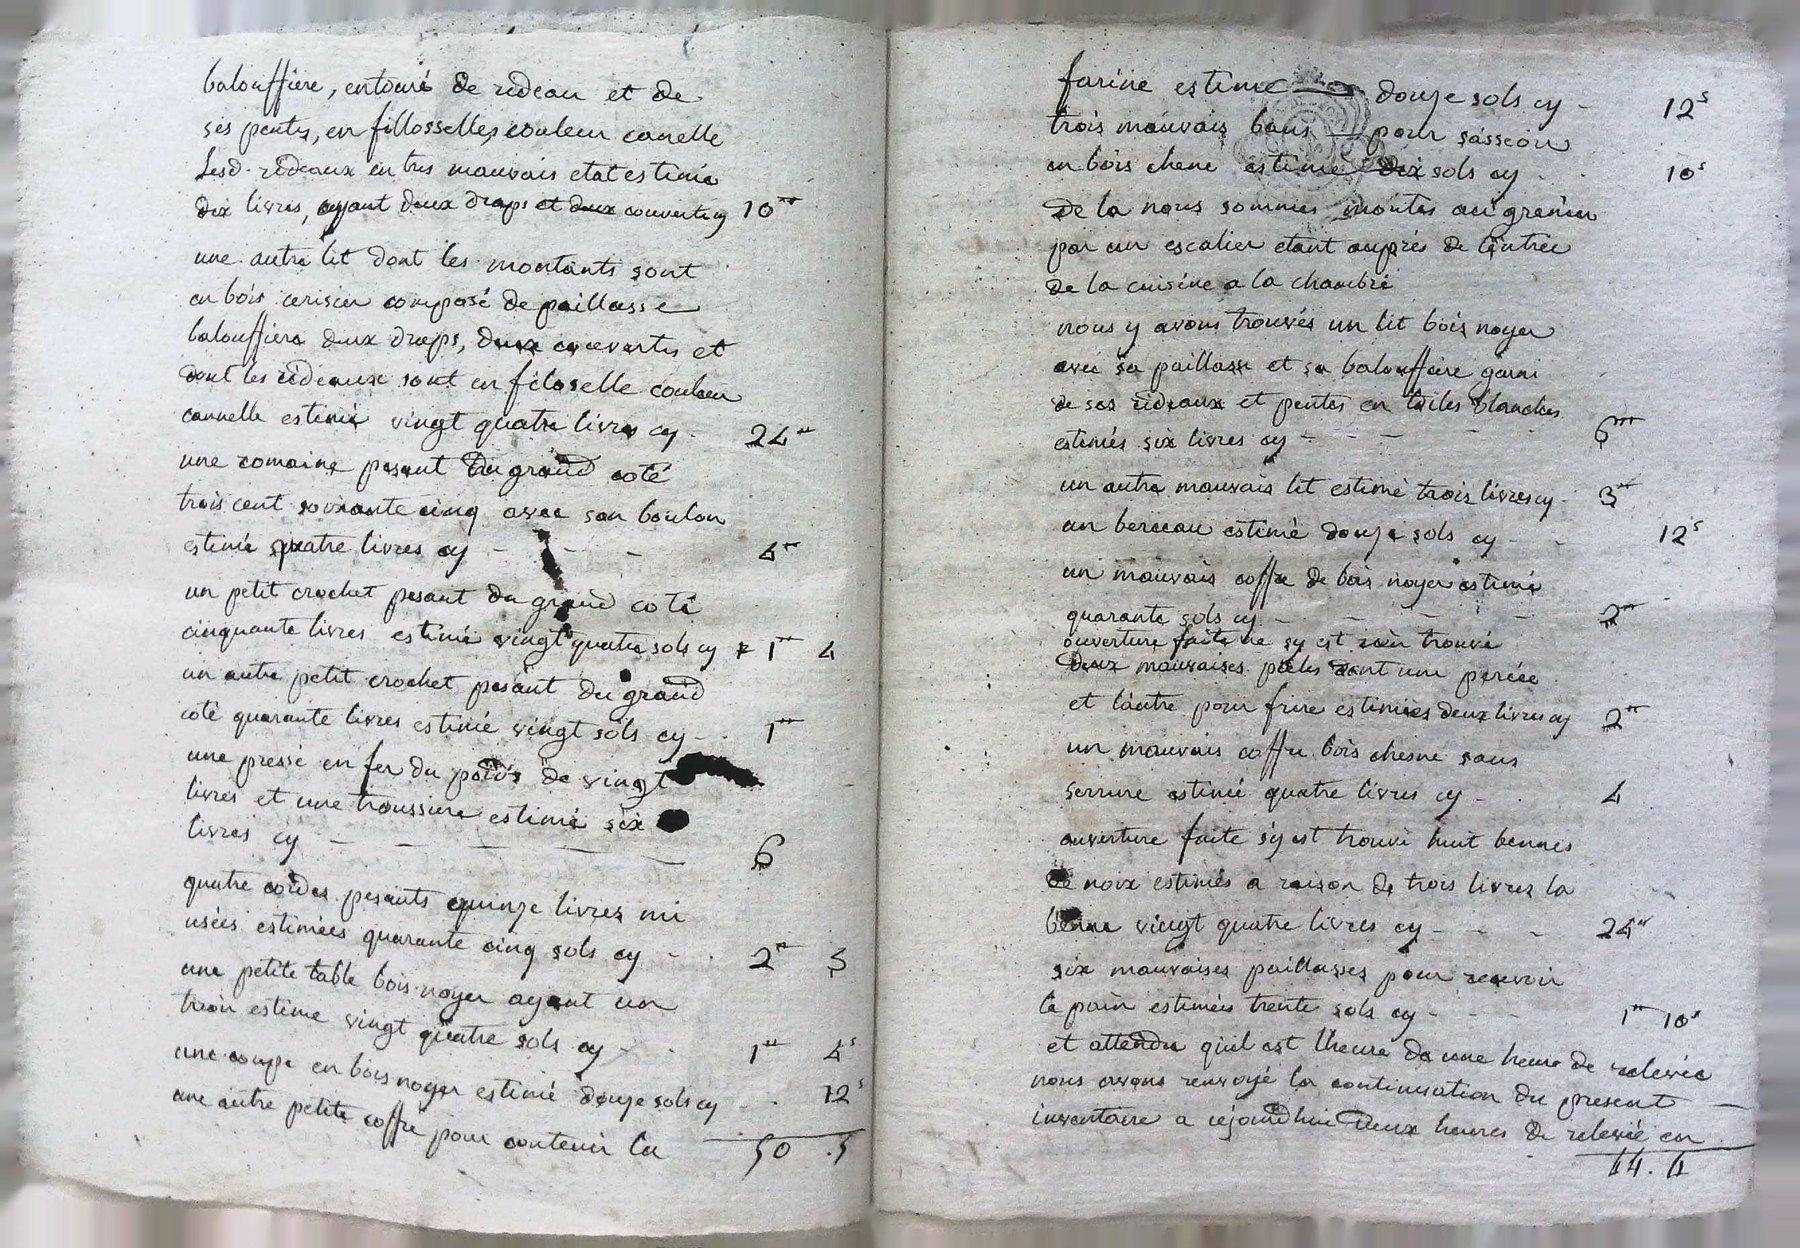 balouffiere, entouré de rideau et de
ses pentes, en fillosselles couleur canelle
Lesd. rideaux en tres mauvais etat estimé
dix livres, ayant deux draps et deux couvertes cy 10tt
une autre lit dont les montants sont
en bois cerisier composé de paillasse
balouffiere deux draps, deux couvertes et
dont les rideaux sont en filoselle couleur
cannelle estimé vingt quatre livres cy - 24tt
une romaine pesant du grand coté
trois cent soixante cinq avec son boulon
estimé quatre livres cy - - - 4tt
un petit crochet pesant du grand coté
cinquante livres estimé vingt quatre sols cy 1tt 4
un autre petit crochet pesant du grand
coté quarante livres estimé vingt sols cy - 1tt
une presse en fer du poids de vingt
livres et une troussiere estimé six
livres cy - - - - - 6
quatre cordes pesants quinze livres mi
usées estimées quarante cinq sols cy - 2tt 5
une petite table bois noyer ayant un
tiroir estimé vingt quatre sols cy - 1tt 4s
une coupe en bois noyer estimé douze sols cy - 12s
une autre petite coffre pour contenir la
50 . 5
farine estimé douze sols cy - 12s
trois mauvais bans pour sasseoir
en bois chene estimé dix sols cy - 10s
de la nous sommes montes au grenier
par un escalier etant auprés de lentrée
de la cuisine a la chambre
nous y avons trouvés un lit bois noyer
avec sa paillasse et sa balouffiere garni
de ses rideaux et pentes en toiles blanches
estimés six livres cy - - - 6tt
un autre mauvais lit estimé trois livres cy - 3tt
un berceau estimé douze sols cy - 12s
un mauvais coffre de bois noyer estimé
quarante sols cy - - - - 2tt
ouverture faite ne sy est rien trouvé
deux mauvaises poeles dont une percée
et lautre pour frire estimées deux livres cy 2tt
un mauvais coffre bois chesne sans
serrure estimé quatre livres cy - 4
ouverture faite s'y est trouvé huit bennes
de noix estimés a raison de trois livres la
benne vingt quatre livres cy - - - 24tt
six mauvaises paillasses pour recevoir
le pain estimées trente sols cy - 1tt 10s
et attendu qu'il est l'heure de une heure de relevée
nous avons renvoyé la continuation du present
inventaire a cejourdhui deux heures de relevée en
44 . 4